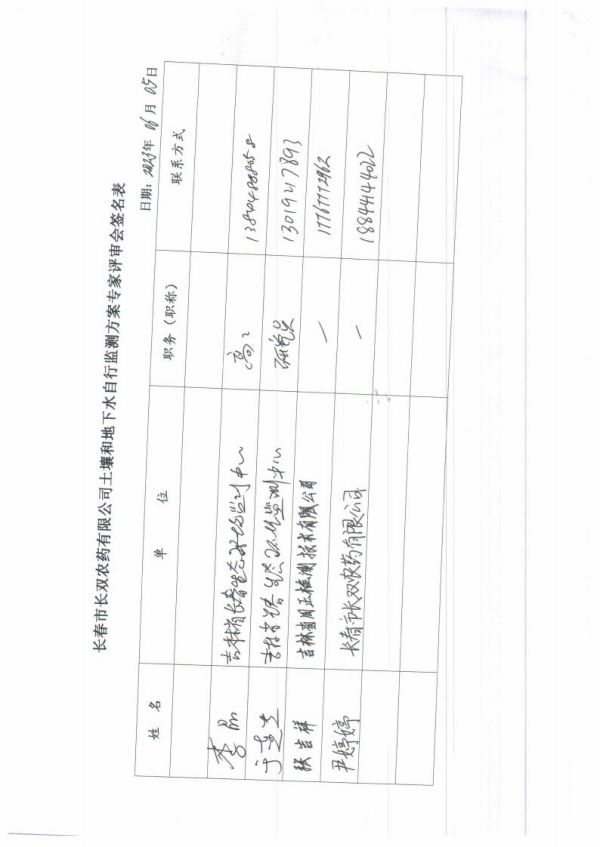 长春市长双农药有限公司土壤和地下水自行监测方案专家评审会签名表
日期：2023年06月05日
姓名 单位 职务（职称） 联系方式
李 吉林省长春生态环境监测中心 高工
吉林省 生态环境监测中心 研究员 13019217893
张吉祥 吉林省同正检测技术有限公司 — 17767772962
尹婷婷 长春市长双农药有限公司 — 18844144022